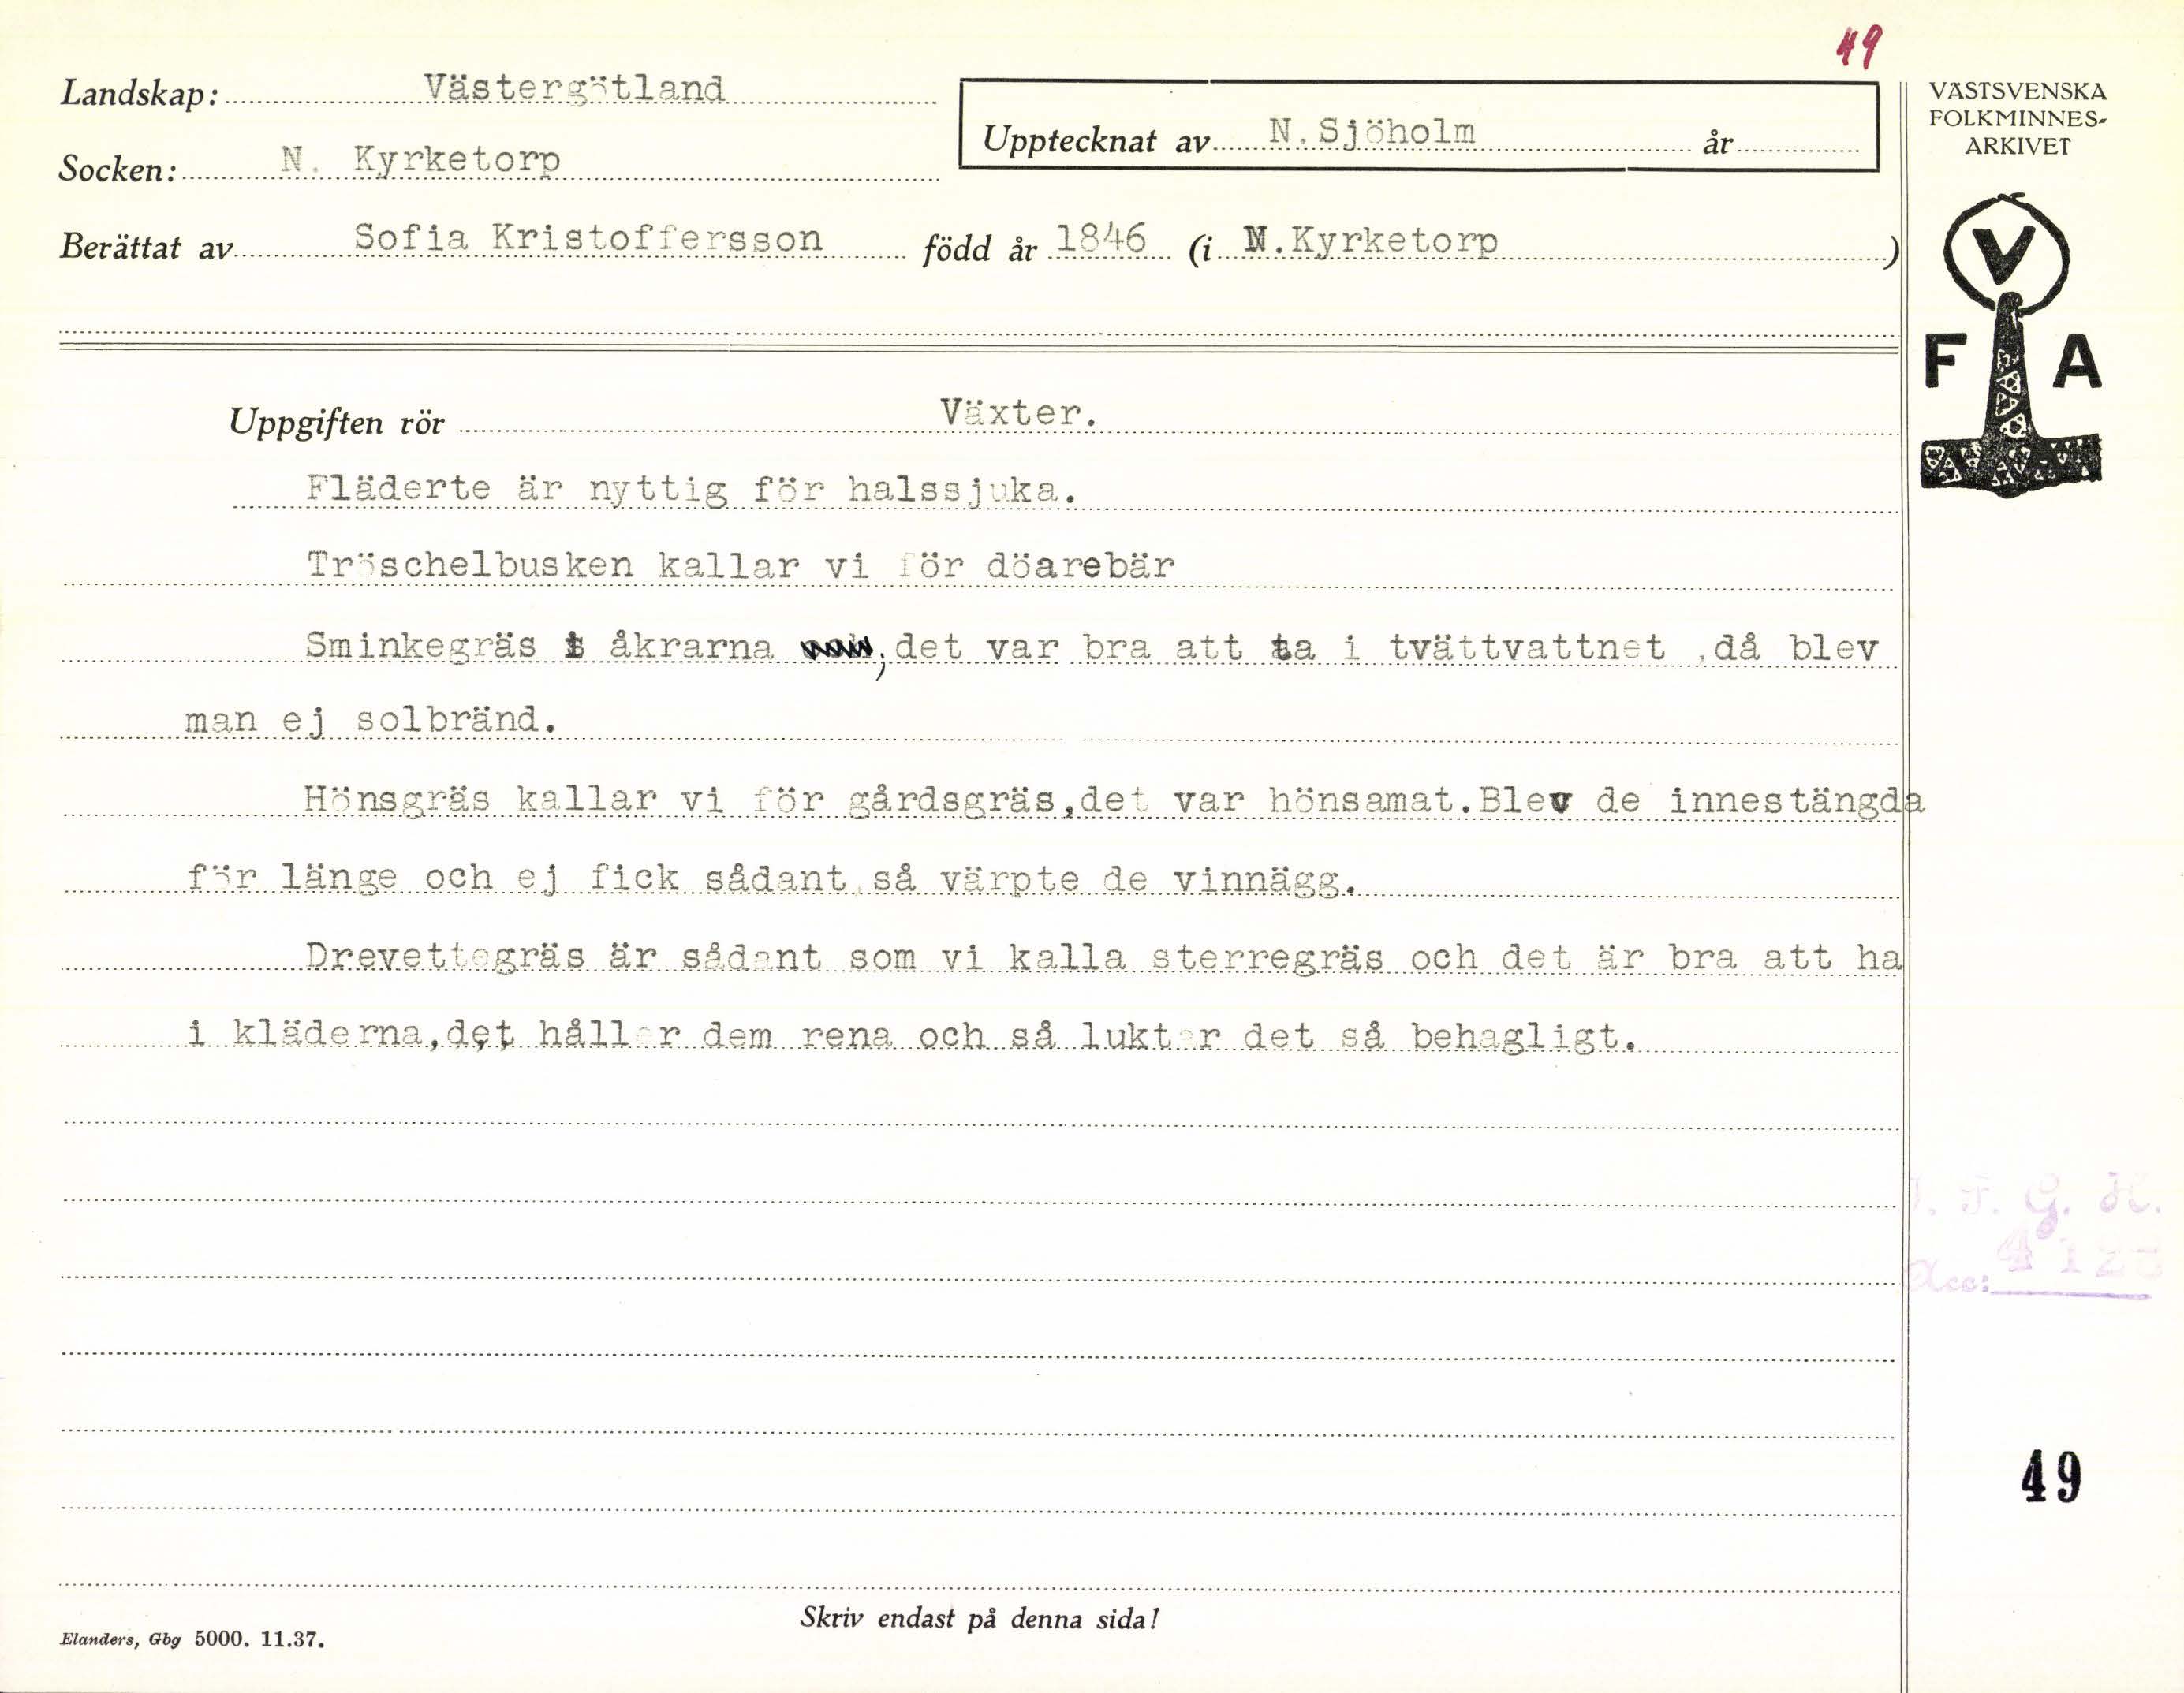 49
Landskap: Västergötland
Socken: N. Kyrketorp
Upptecknat av N.Sjöholm år
Berättat av Sofia Kristoffersson född år 1846 (i N.Kyrketorp)
VÄSTSVENSKA
FOLKMINNES-
ARKIVET
V
F A
Uppgiften rör Växter.
Fläderte är nyttig för halssjuka.
Tröschelbusken kallar vi för döarebär
Sminkegräs i åkrarna ; det var bra att ta i tvättvattnet ,då blev
man ej solbränd.
Hönsgräs kallar vi för gårdsgräs,det var hönsamat.Blev de innestängda
för länge och ej fick sådant så värpte de vinnägg.
Drevettegräs är sådant som vi kalla sterregräs och det är bra att ha
i kläderna,det håller dem rena och så luktar det så behagligt.
G. H.
Acc:
49
Skriv endast på denna sida!
Elanders, Gbg 5000. 11.37.